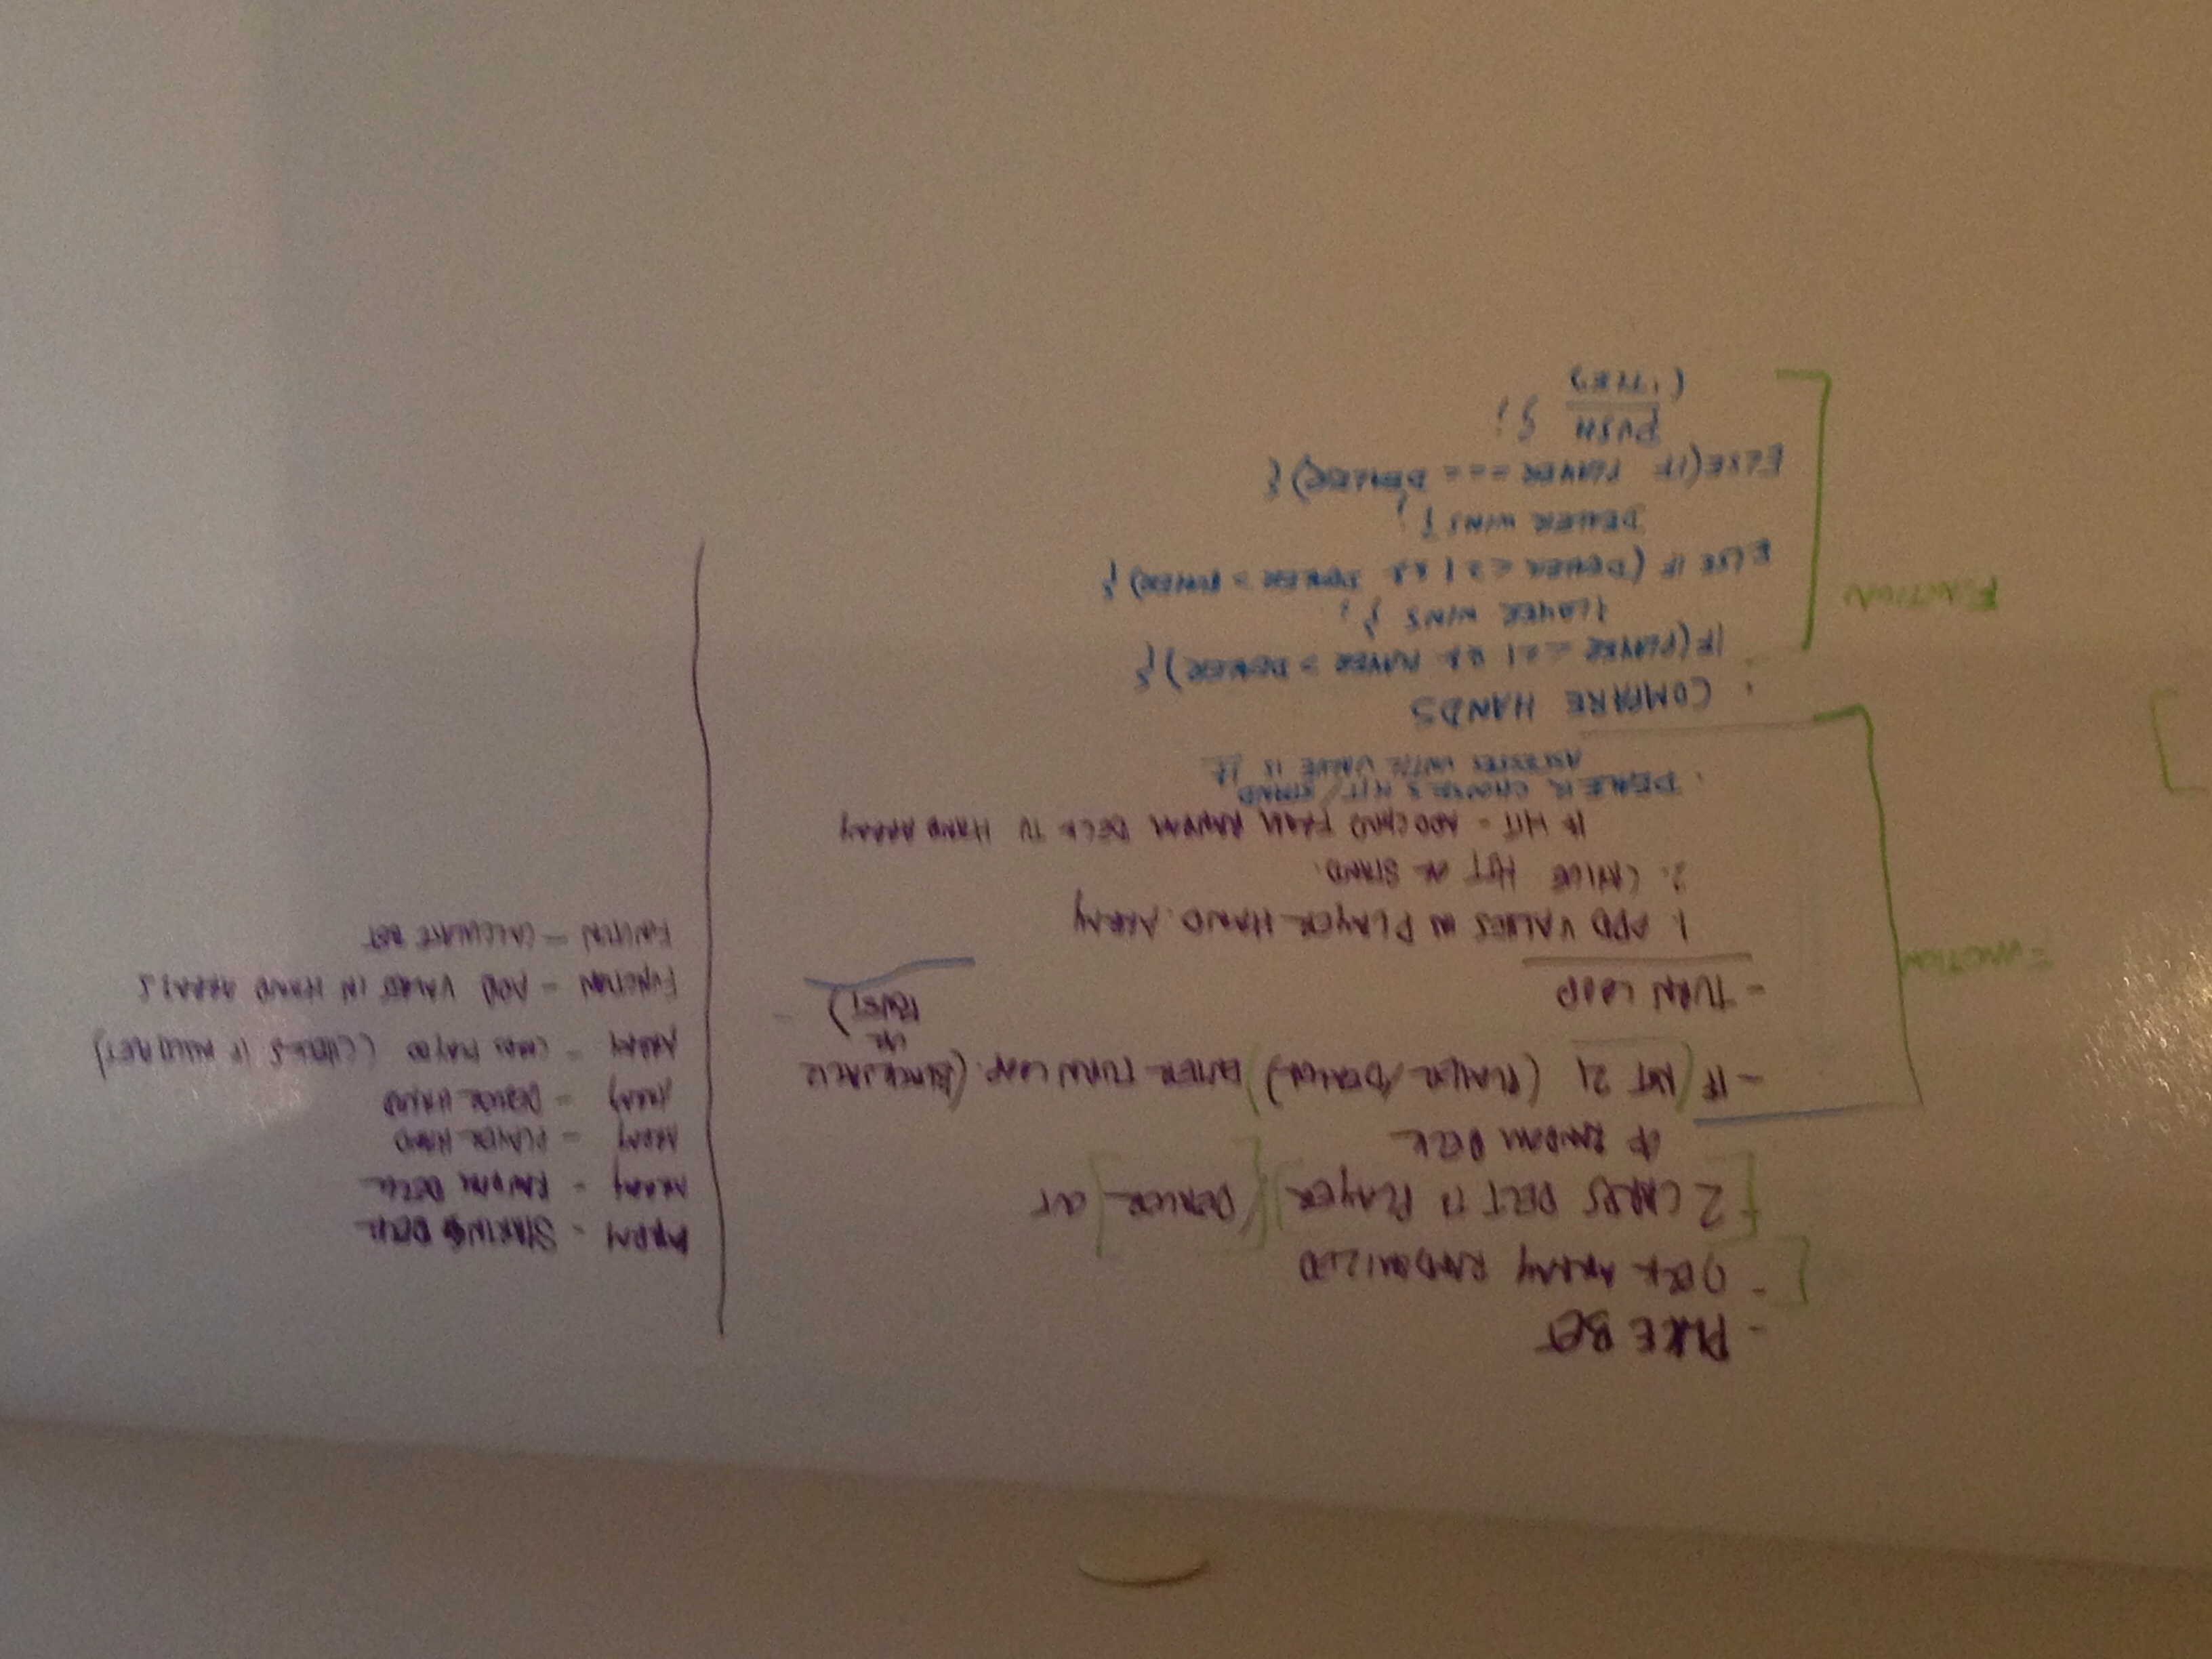 - PLACE BET
- DECK ARRAY RANDOMIZED
2 CARDS DELT TO PLAYER / DEALER OUT
OF RANDOM DECK
- IF (NOT 21 (PLAYER/DEALER)) ENTER TURN LOOP. (BLACKJACK
OR
BUST)
- TURN LOOP
FUNCTION
1. ADD VALUES IN PLAYER HAND. ARRAY
2. CHOICE HIT OR STAND.
IF HIT - ADD CARD FROM RANDOM DECK TO HAND ARRAY
. DEALER CHOOSES HIT/STAND
UNTIL VALUE IS
. COMPARE HANDS
IF (PLAYER <=21 && PLAYER > DEALER) {
PLAYER WINS };
FUNCTION
ELSE IF (DEALER <21 && DEALER > PLAYER) {
DEALER WINS };
ELSE(IF PLAYER === DEALER) {
PUSH };
(TIE)
ARRAY - STARING DECK
ARRAY - RANDOM DECK
ARRAY - PLAYER HAND
ARRAY - DEALER HAND
ARRAY - CARDS PLAYED (CHECKS IF
FUNCTION - ADD VALUES IN HAND ARRAYS
FUNCTION - CALCULATE BET